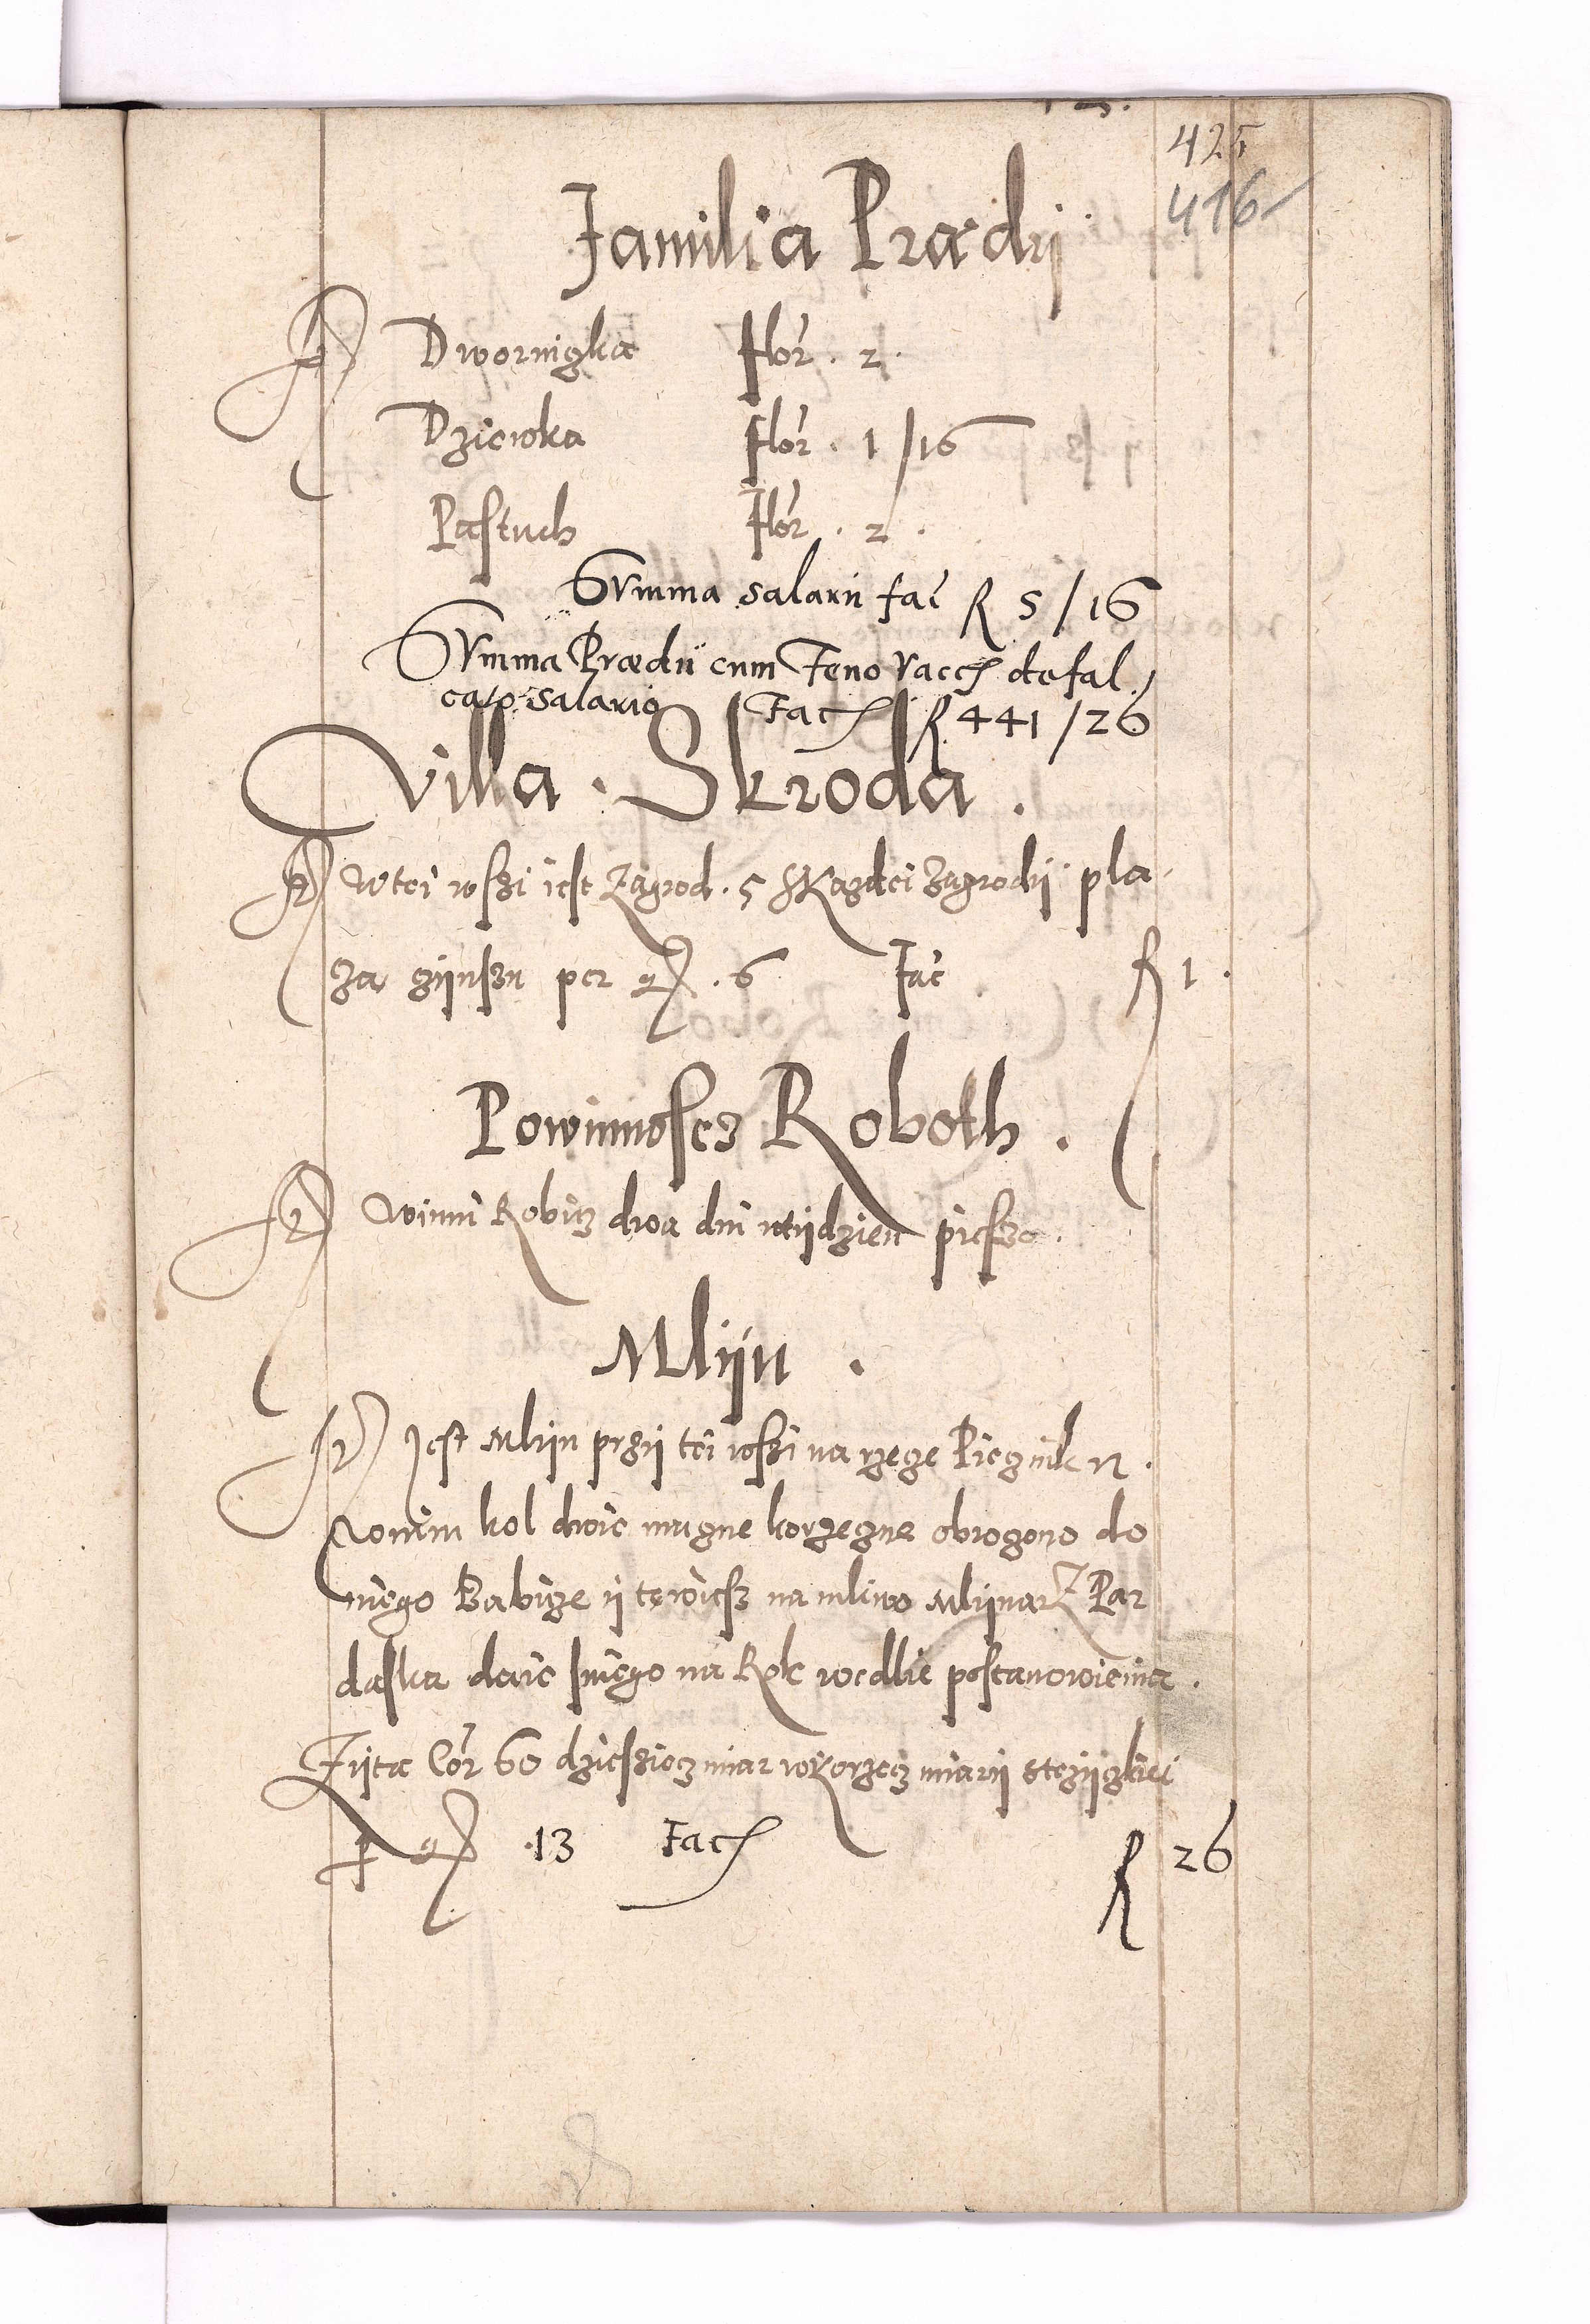 425
416
Familia Prædij
Dwornigka Flor. 2.
Dziewka Flor. 1/16
Pastuch Flor. 2.
Summa salarii fac R 5/16
Summa Prædii cum Feno Vacc defal
cato salario Fac R 441/26
Villa. Skroda.
W tei wszi iest Zagrod. 5 S Kazdei Zagrodij pla
za czijnszu per 6 Fac R 1.
Powinnoscz Roboth.
Winni Robicz dwa dni w tijdzien pieszo.
Mlijn.
Jest Mlijn przij tei wszi na rzece
Wonim kol dwie mugne korzegne obrogono do
niego Babicze ij tewiesz na mliwo Mlijnarz Par
daska daie snиego na Rok wedlie postanowienia.
Zijta Cor 60 dziesziecz miar w Korzecz miarij
13 Fac R 26